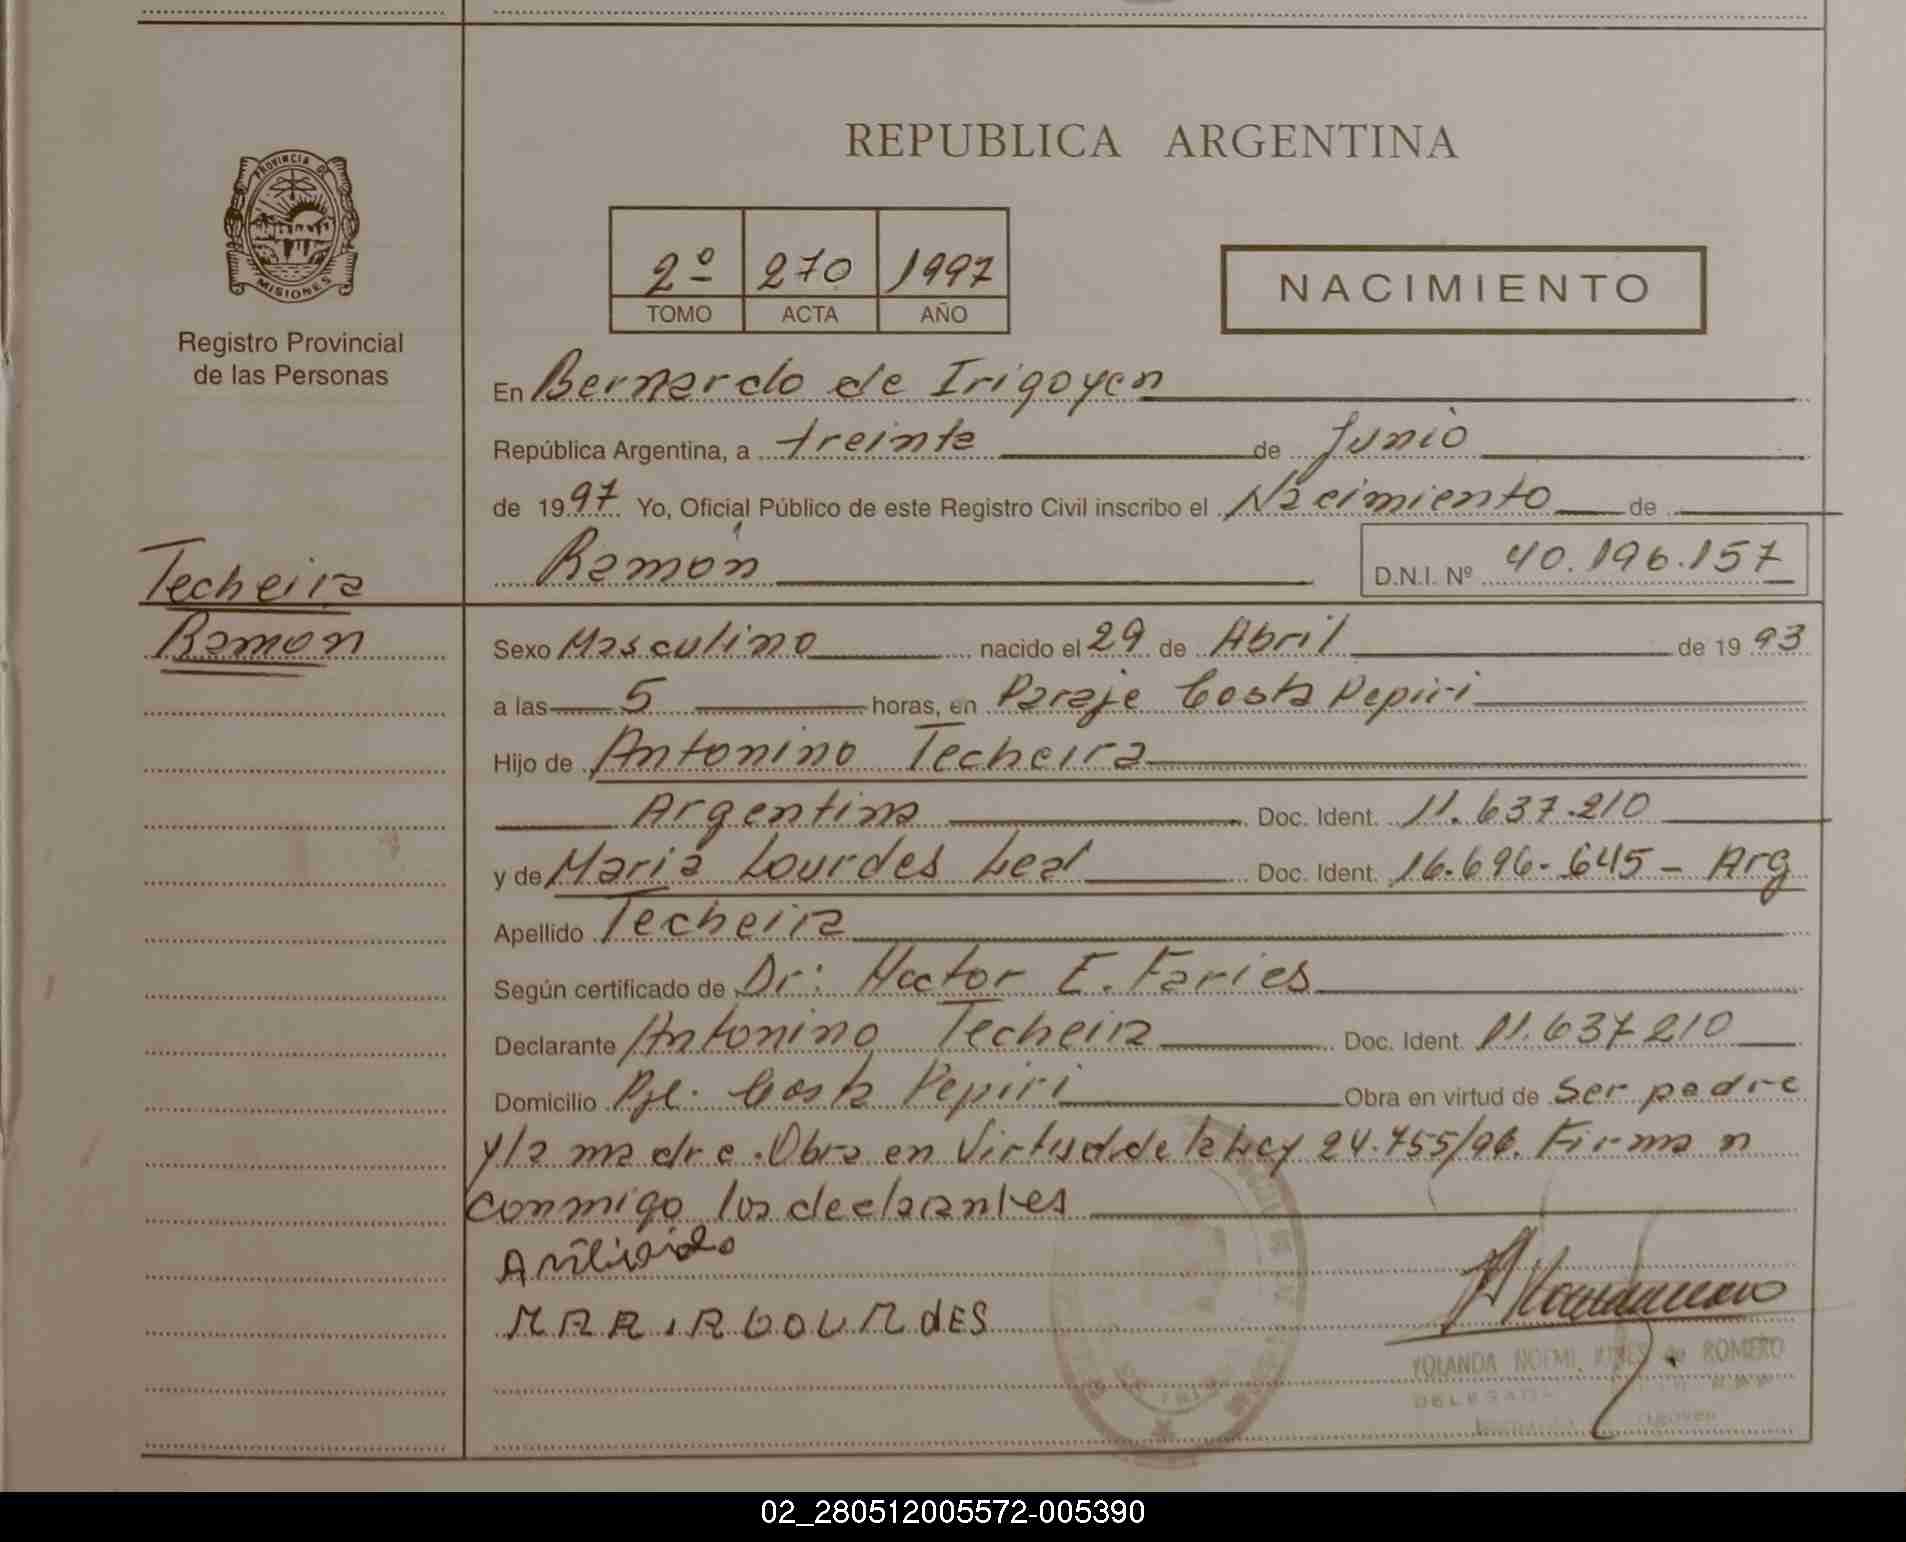 PROVINCIA DE
MISIONES
Registro Provincial
de las Personas
Techeira
Ramón
REPUBLICA ARGENTINA
2º 270 1997
TOMO ACTA AÑO
NACIMIENTO
En Bernardo de Irigoyen
República Argentina, a treinta de Junio
de 1997 Yo, Oficial Público de este Registro Civil inscribo el Nacimiento de
Ramón D.N.I. Nº 40.196.157
Sexo Masculino nacido el 29 de Abril de 1993
a las 5 horas, en Paraje Costa Pepiri
Hijo de Antonino Techeira
Argentina Doc. Ident. 11.637.210
y de Maria Lourdes Leal Doc. Ident. 16.696.645 - Arg
Apellido Techeira
Según certificado de Dr: Hector E. Faries
Declarante Antonino Techeira Doc. Ident. 11.637210
Domicilio Pje. Costa Pepiri Obra en virtud de Ser padre
y la madre. Obra en Virtud de la Ley 24.755/96. Firman
conmigo los declarantes
YOLANDA NOEMI de ROMERO
DELEGADA
02_280512005572-005390